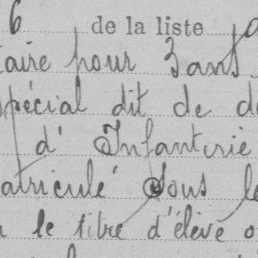 6 de la liste
taire pour 3 ans
spécial dit de
d' Infanterie
matriculé Sous le
le titre d'élève o